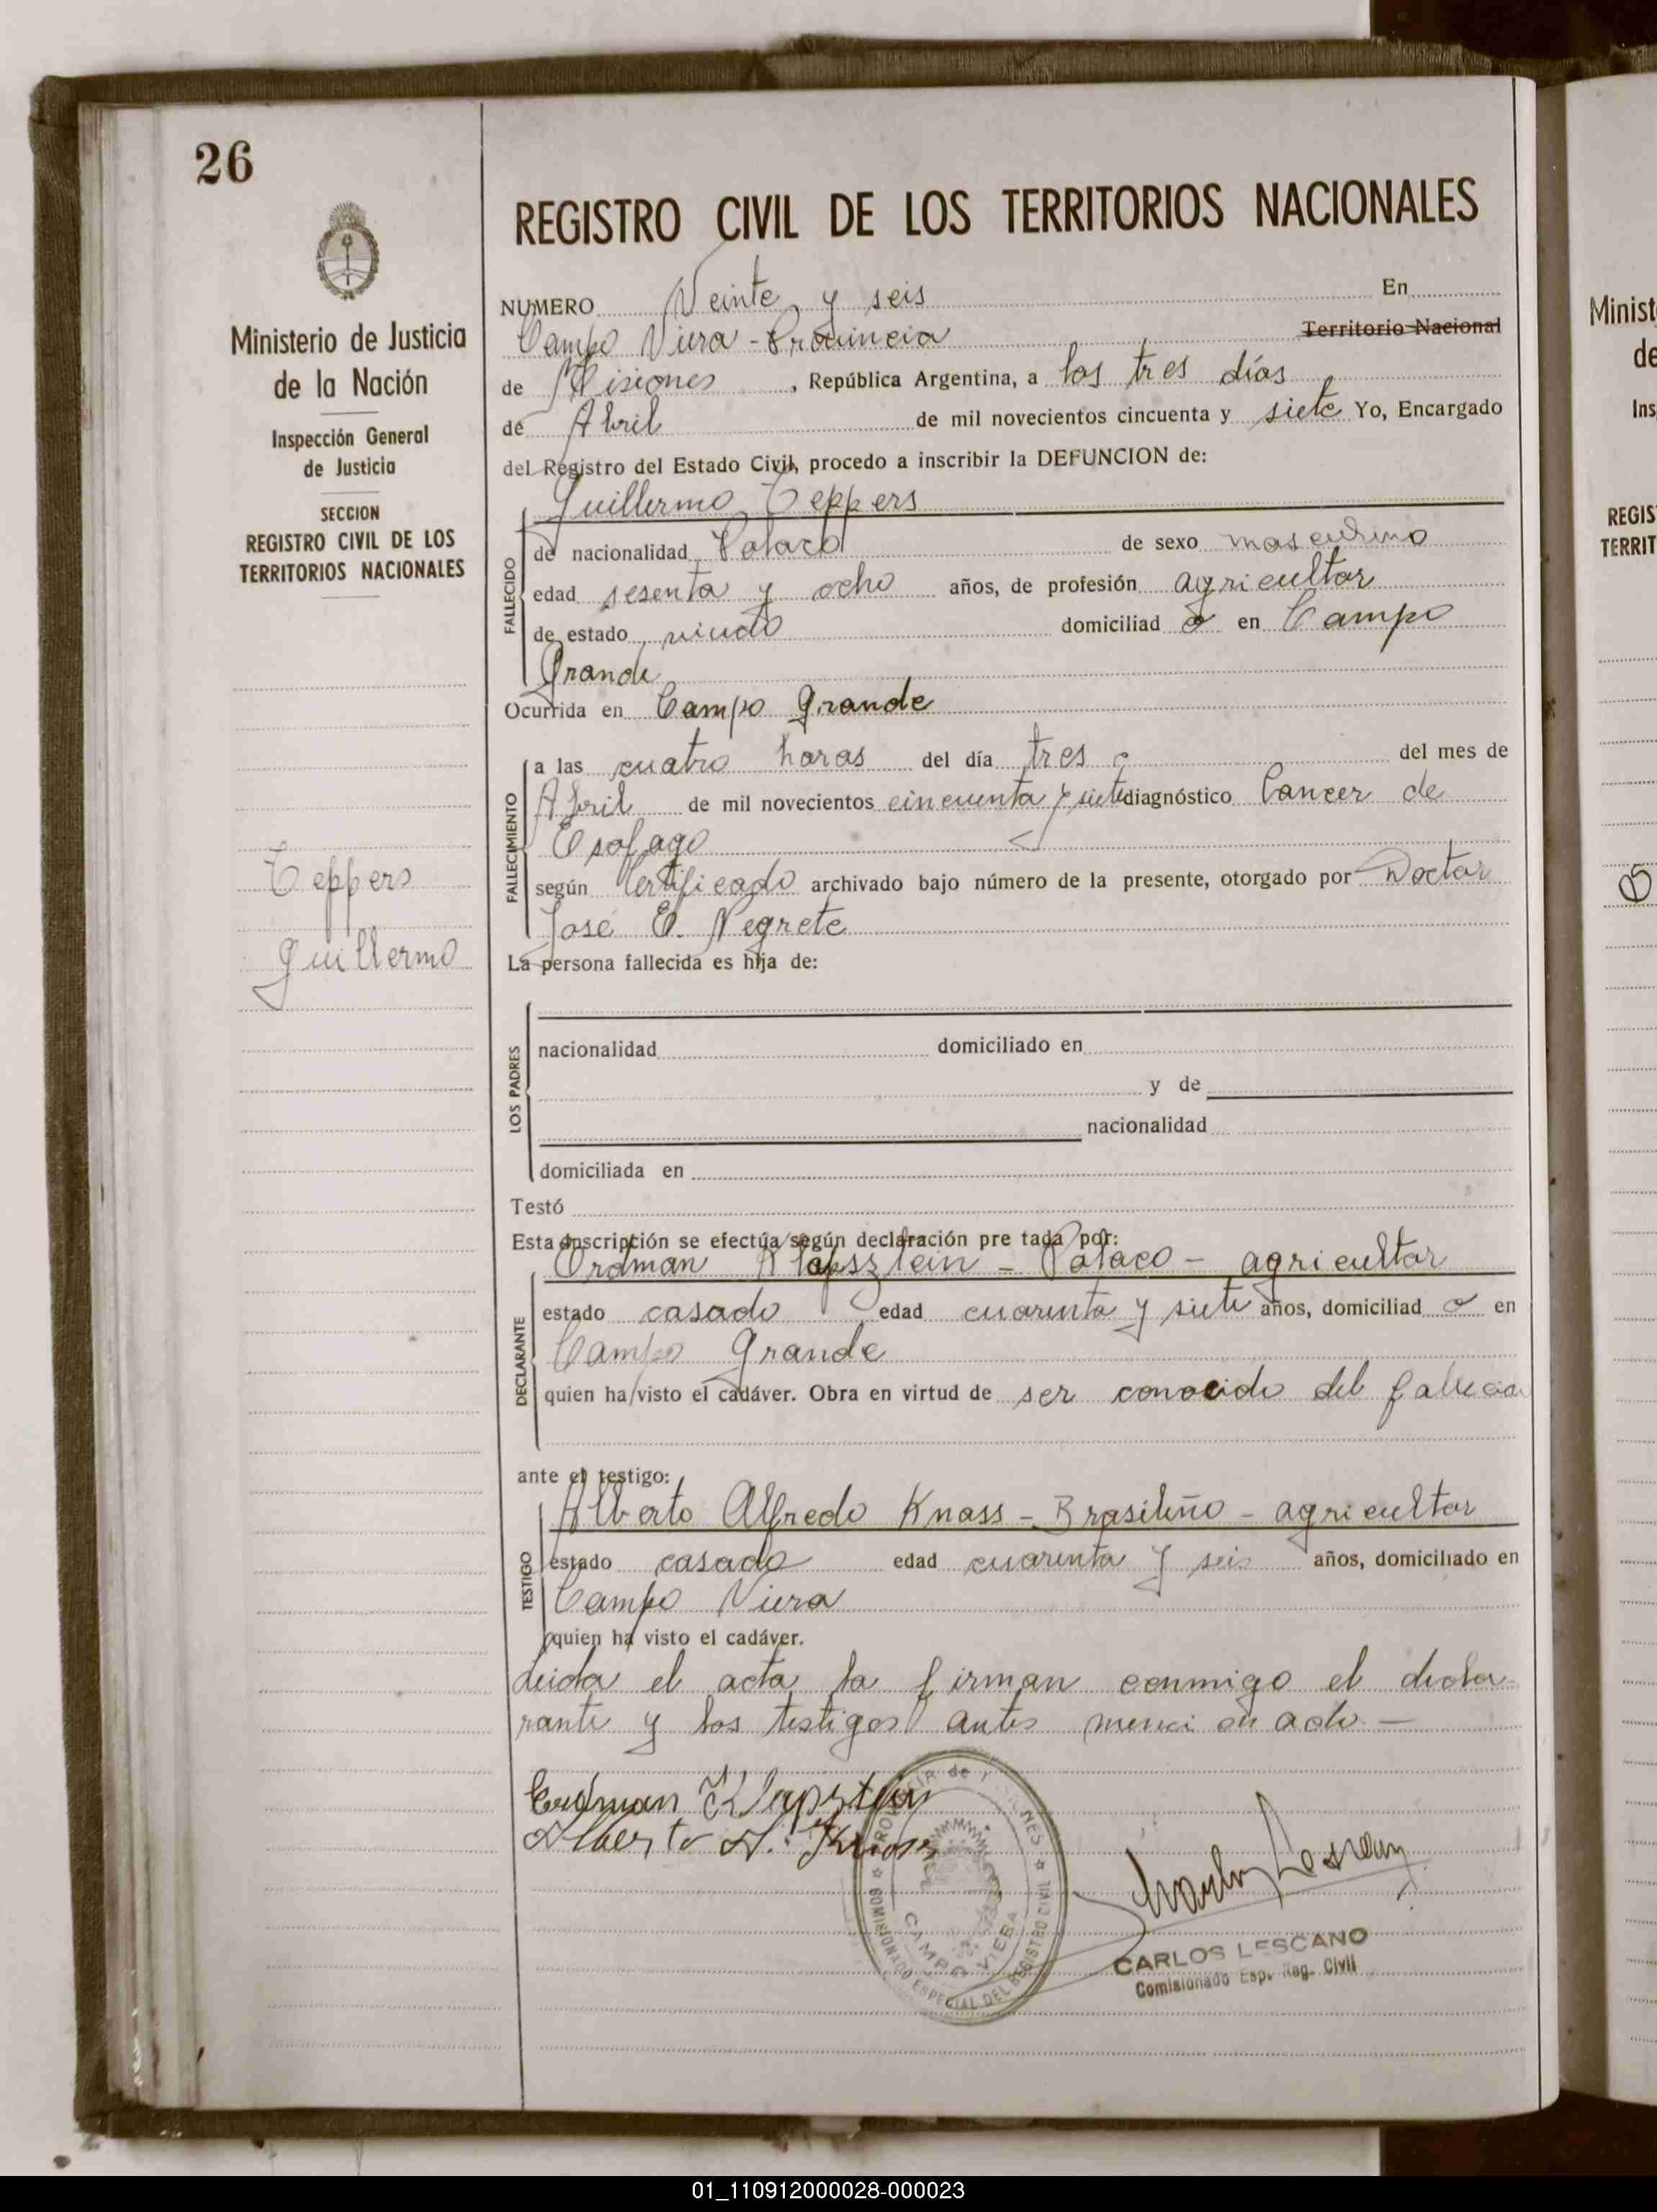 26
Ministerio de Justicia
de la Nación
Inspección General
de Justicia
SECCION
REGISTRO CIVIL DE LOS
TERRITORIOS NACIONALES
Teppers
Guillermo
REGISTRO CIVIL DE LOS TERRITORIOS NACIONALES
NUMERO Veinte y seis En
Campo Viera - Provincia Territorio Nacional
de Misiones, República Argentina, a los tres días
de Abril de mil novecientos cincuenta y siete Yo, Encargado
del Registro del Estado Civil, procedo a inscribir la DEFUNCION de:
Guillermo Teppers
FALLECIDO
de nacionalidad Polaco de sexo masculino
edad sesenta y ocho años, de profesión agricultor
de estado viudo domiciliad o en Campo
Grande
Ocurrida en Campo Grande
FALLECIMIENTO
a las cuatro horas del día tres del mes de
Abril de mil novecientos cincuenta y siete diagnóstico Cancer de
Esofago
según Certificado archivado bajo número de la presente, otorgado por Doctor
José E. Negrete
La persona fallecida es hija de:
LOS PADRES
nacionalidad domiciliado en
y de
nacionalidad
domiciliada en
Testó
Esta inscripción se efectúa según declaración pre tada por:
DECLARANTE
Erdman - Polaco - agricultor
estado casado edad cuarenta y siete años, domiciliad o en
Campo Grande
quien ha visto el cadáver. Obra en virtud de ser conocido del
ante el testigo:
TESTIGO
Alberto Alfredo Knass - Brasileño - agricultor
estado casado edad cuarenta y seis años, domiciliado en
Campo Viera
quien ha visto el cadáver.
Leida el acta la firman conmigo el decla
rante y los testigos antes mencionado -
Erdman
Alberto A.
PROVINCIA de MISIONES
COMISIONADO ESPECIAL DEL REGISTRO CIVIL
CAMPO VIERA
CARLOS LESCANO
Comisionado Esp. Reg. Civil
Minist
de
Ins
REGIS
TERRIT
01_110912000028-000023